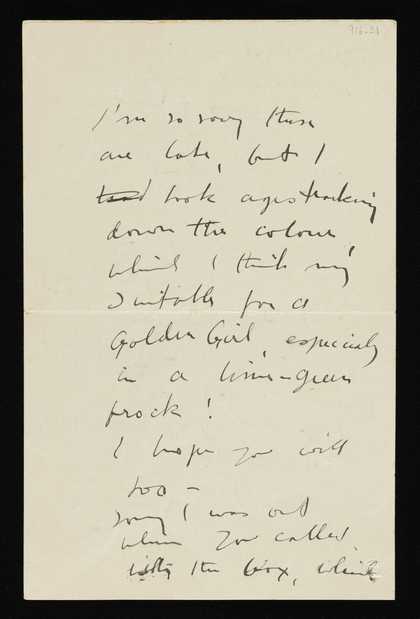 916-21
I'm so sorry these
are late, but I
took ages tracking
down the colour,
which I think my
suitable for a
Golden Girl, especially
in a lime-green
frock!
I hope you will
too –
sorry I was out
when you called
with the box, which